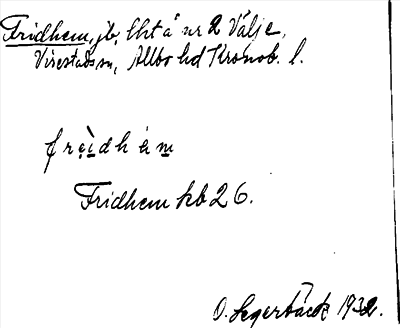 Fridhem, jb, lht å nr 2 Välje,
Virestads sn, Allbo hd Kronob. l.
frịdh ém
Fridhem kb 26.
O. Segerbäck 1932.